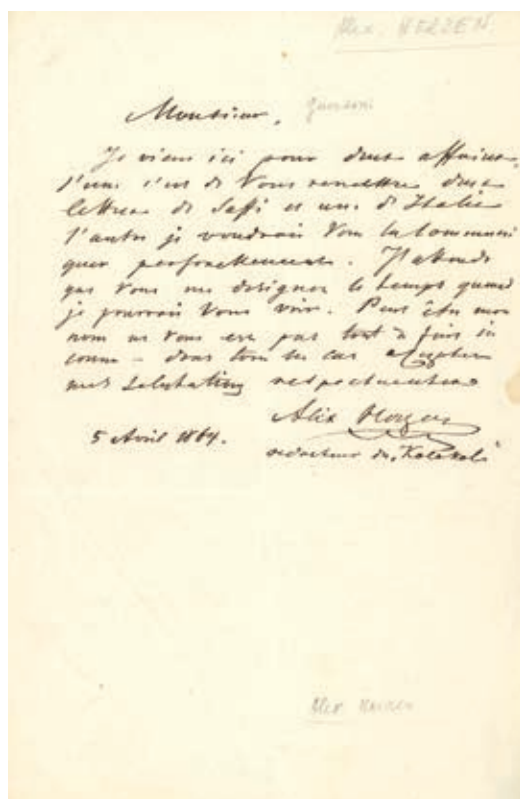 Alex. HERZEN
Monsieur,
Je viens ici pour deux affaires,
l'une c'est de Vous remettre deux
lettres de Saffi et une d'Italie
l'autre je voudrais Vous la communi
quer personellement. J'attends
que Vous me designez le temps quand
je pourrais Vous voir. Peut être mon
nom ne Vous est pas tout à fait in
connu – dans tous les cas acceptez
mes salutations respectueuses
Alex Herzen
5 Avril 1864.
redacteur du "Kolokol"
Alex Herzen